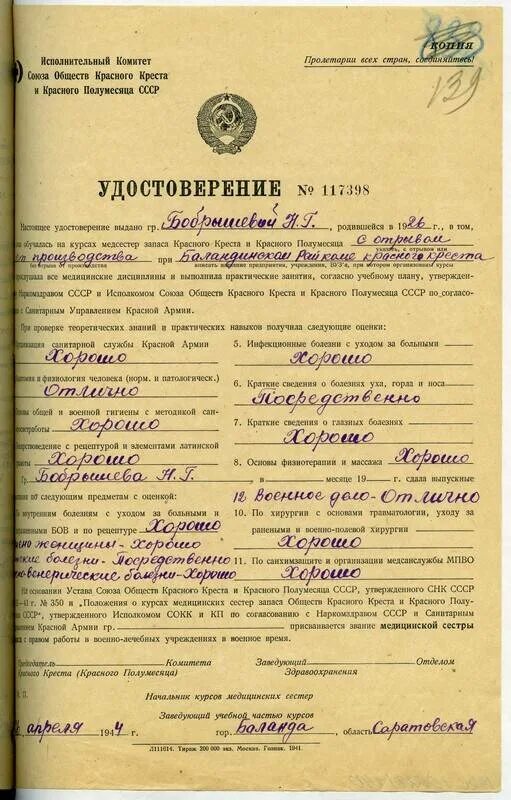 копия
Пролетарии всех стран, соединяйтесь!
139
Исполнительный Комитет
Союза Обществ Красного Креста
и Красного Полумесяца СССР
УДОСТОВЕРЕНИЕ № 117398
Настоящее удостоверение выдано гр. Бобрышевой Н.Г., родившейся в 1926 г., в том,
обучалась на курсах медсестер запаса Красного Креста и Красного Полумесяца с отрывом
от производства при Баландинском Райкоме красного креста
прослушала все медицинские дисциплины и выполнила практические занятия, согласно учебному плану, утвержден-
Наркомздравом СССР и Исполкомом Союза Обществ Красного Креста и Красного Полумесяца СССР по согласо-
с Санитарным Управлением Красной Армии.
При проверке теоретических знаний и практических навыков получила следующие оценки:
санитарной службы Красной Армии
Хорошо
и физиология человека (норм. и патологическ.)
Отлично
общей и военной гигиены с методикой сан-
Хорошо
с рецептурой и элементами латинской
Хорошо
5. Инфекционные болезни с уходом за больными
Хорошо
6. Краткие сведения о болезнях уха, горла и носа
Посредственно
7. Краткие сведения о глазных болезнях
Хорошо
8. Основы физиотерапии и массажа Хорошо
Гр. Бобрышева Н.Г. в месяце 19 г. сдала выпускные
по следующим предметам с оценкой:
внутренним болезням с уходом за больными и
БОВ и по рецептуре Хорошо
женщины - Хорошо
болезни - Посредственно
венерические болезни - Хорошо
12 Военное дело - Отлично
10. По хирургии с основами травматологии, уходу за
ранеными и военно-полевой хирургии
Хорошо
11. По санхимзащите и организации медсанслужбы МПВО
Хорошо
На основании Устава Союза Обществ Красного Креста и Красного Полумесяца СССР, утвержденного СНК СССР
41 г. № 350 и „Положения о курсах медицинских сестер запаса Общества Красного Креста и Красного Полу-
СССР", утвержденного Исполкомом СОКК и КП по согласованию с Наркомздравом СССР и Санитарным
Красной Армии гр. присваивается звание медицинской сестры
с правом работы в военно-лечебных учреждениях в военное время.
Председатель Комитета
Красного Креста (Красного Полумесяца)
Заведующий Отделом
Здравоохранения
Начальник курсов медицинских сестер
Заведующий учебной частью курсов
апреля 1944 г. гор. Баланда, область Саратовская
Л111614. Тираж 200 000 экз. Москва. Гознак. 1941.